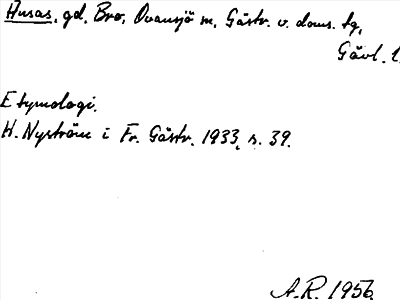 Husas, gd, Bro, Ovansjö sn, Gästr. v. doms. tg,
Gävl. l.
Etymologi.
H. Nyström i Fr. Gästr. 1933, s. 39.
A.R. 1956